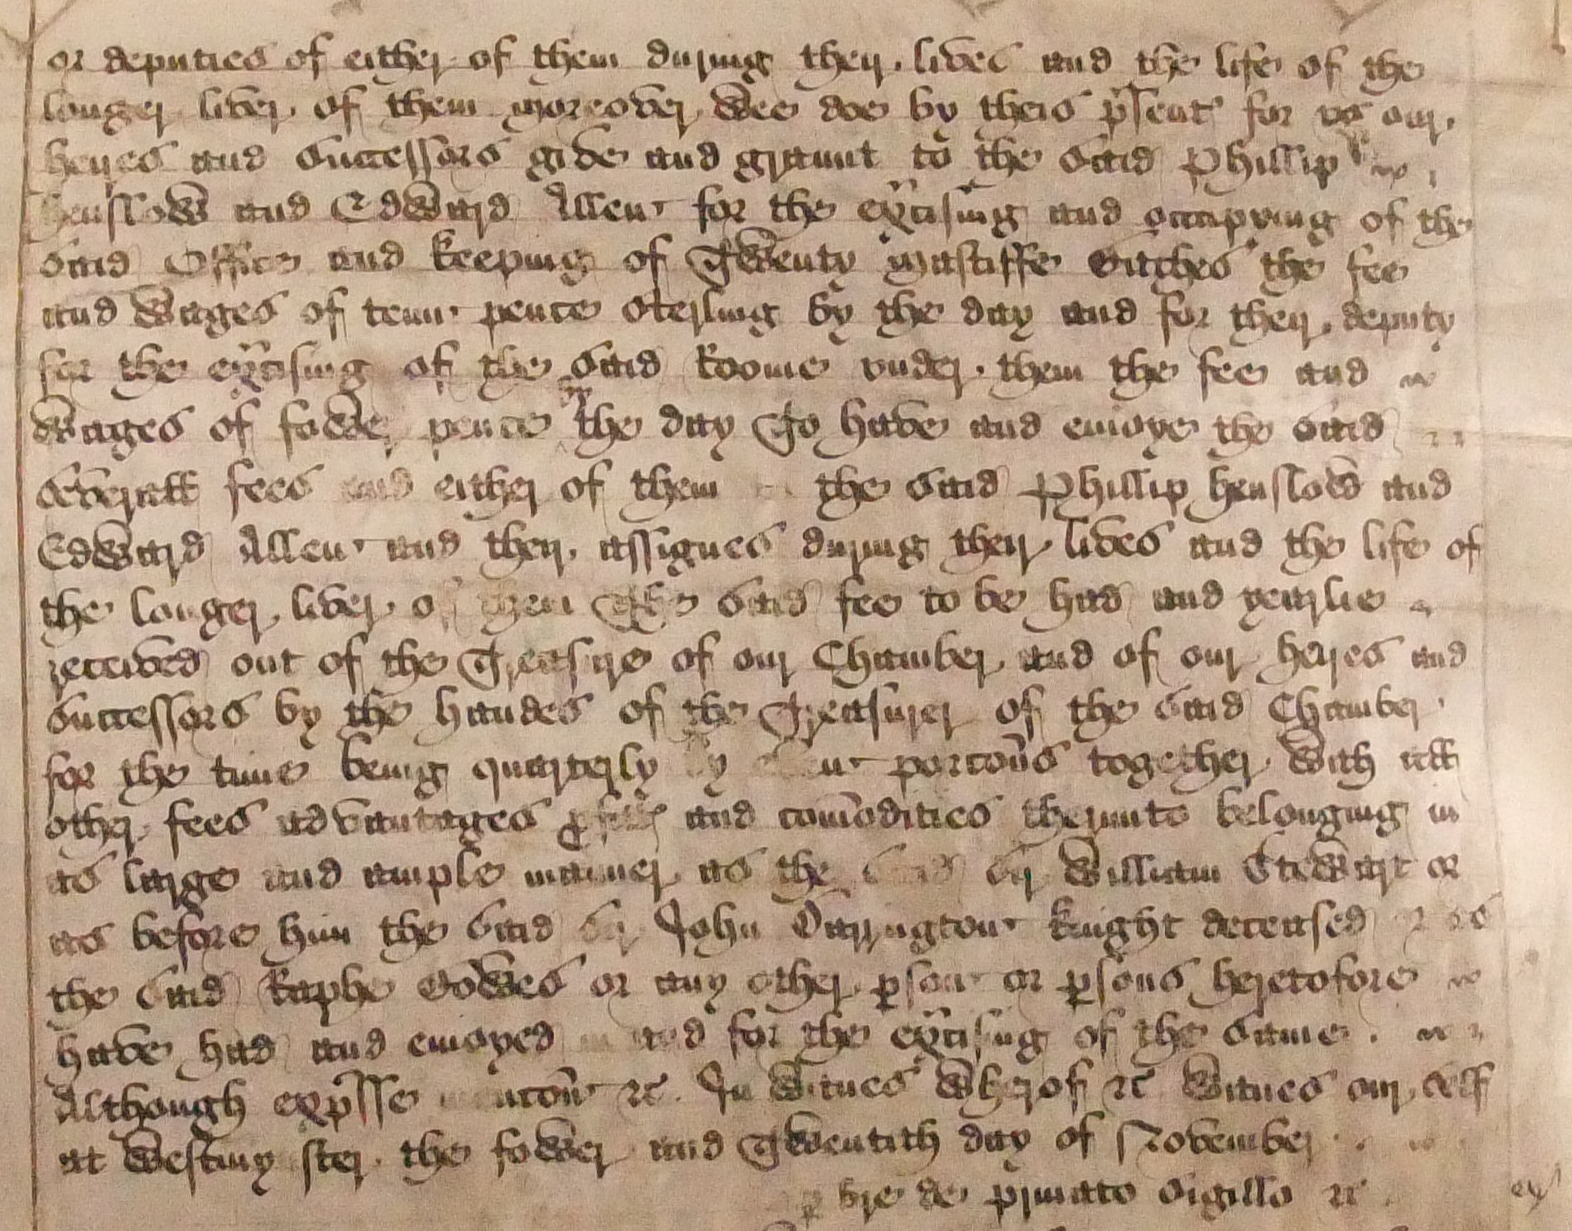 or deputies of either of them during their lives and the life of the
longer liver of them moreover wee doe by theis p̃sent for vs our
heyres and Successors give and graunt to the said Phillip
henslow and Edward Allen for the exc̃ising and occupying of the
said Office and keeping of Twenty mastiffe Bitches the fee
and wages of tenn pence sterling by the day and for their deputy
for the exc̃ising of the said Roome vnder them the fee and
wages of fower pence by the day To have and enioye the said
severall fees and either of them the said Phillip henslow and
Edward Allen and their assignes during their lives and the life of
the longer liver of them The said fee to be had and yearlie
received out of the Treasure of our Chamber and of our heyres and
Successors by the handes of the Treasurer of the said Chamber
for the time being quarterly by porcõns together with all
other fees advantages ꝓfitts and com̃odities therunto belonging in
as large and ample manner as the said Sir William Steward or
as before him the said Sir John Darrington knight deceased or as
the said Raphe Bowes or any other ꝑson or ꝑsons heretofore
have had and enioyed in and for the exc̃ising of the same
Although exp̃sse mencõn &c. In witnes wherof &c witnes our self
at westmynster the fower and Twentith day of November
ꝑ bre de privato Sigillo &c